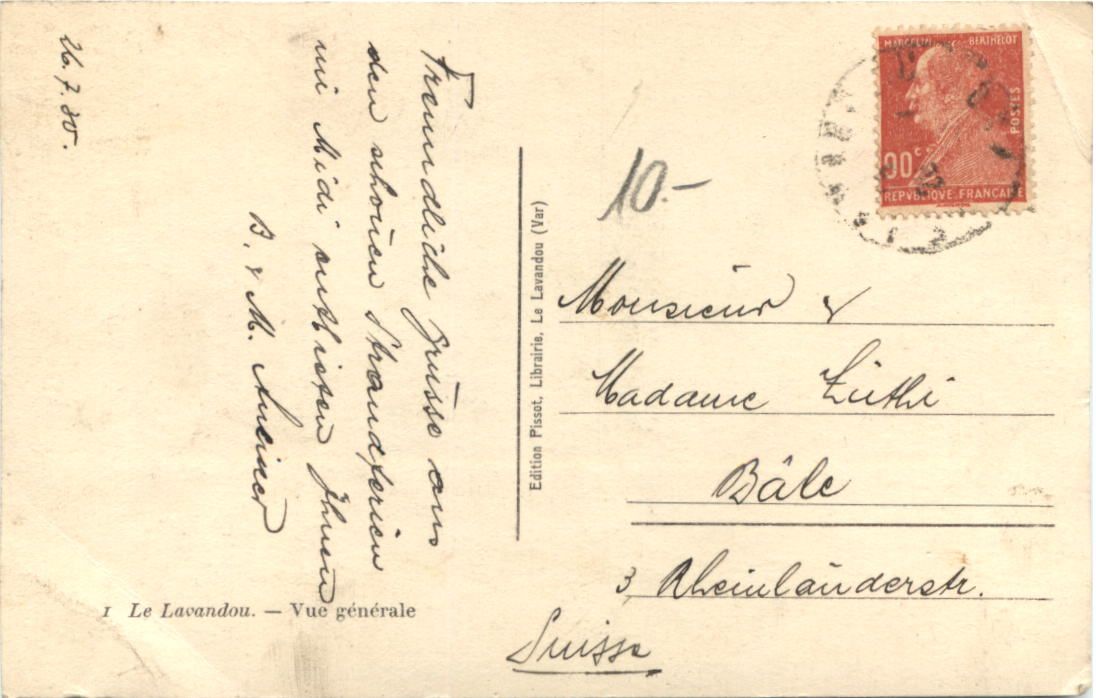 26.7.30.
Freundliche Grüsse aus
den schönen Strandferien
im Midi entbieten Ihnen
B. & M.
I Le Lavandou. — Vue générale
Edition Pissot, Librairie, Le Lavandou (Var)
10.-
MARCELIN BERTHELOT
POSTES
90c
REPVBLIQVE FRANÇAISE
Monsieur &
Madame Lüthi
Bâle
3, Rheinländerstr.
Suisse